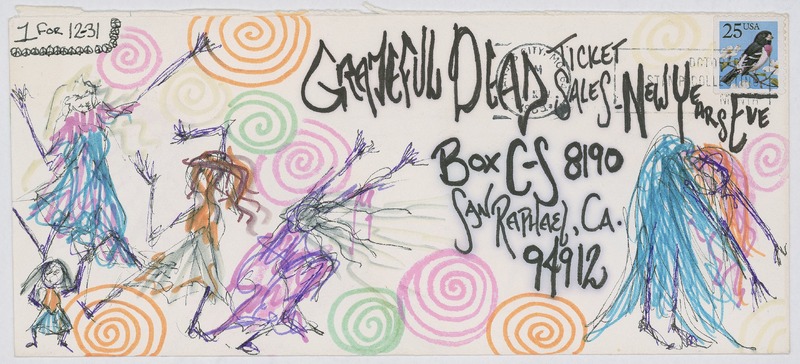 1 FOR 12-31
25 USA
GRATEFUL DEAD TICKET
SALES - NEW YEARS EVE
BOX C-S 8190
SAN RAPHAEL, CA.
94912